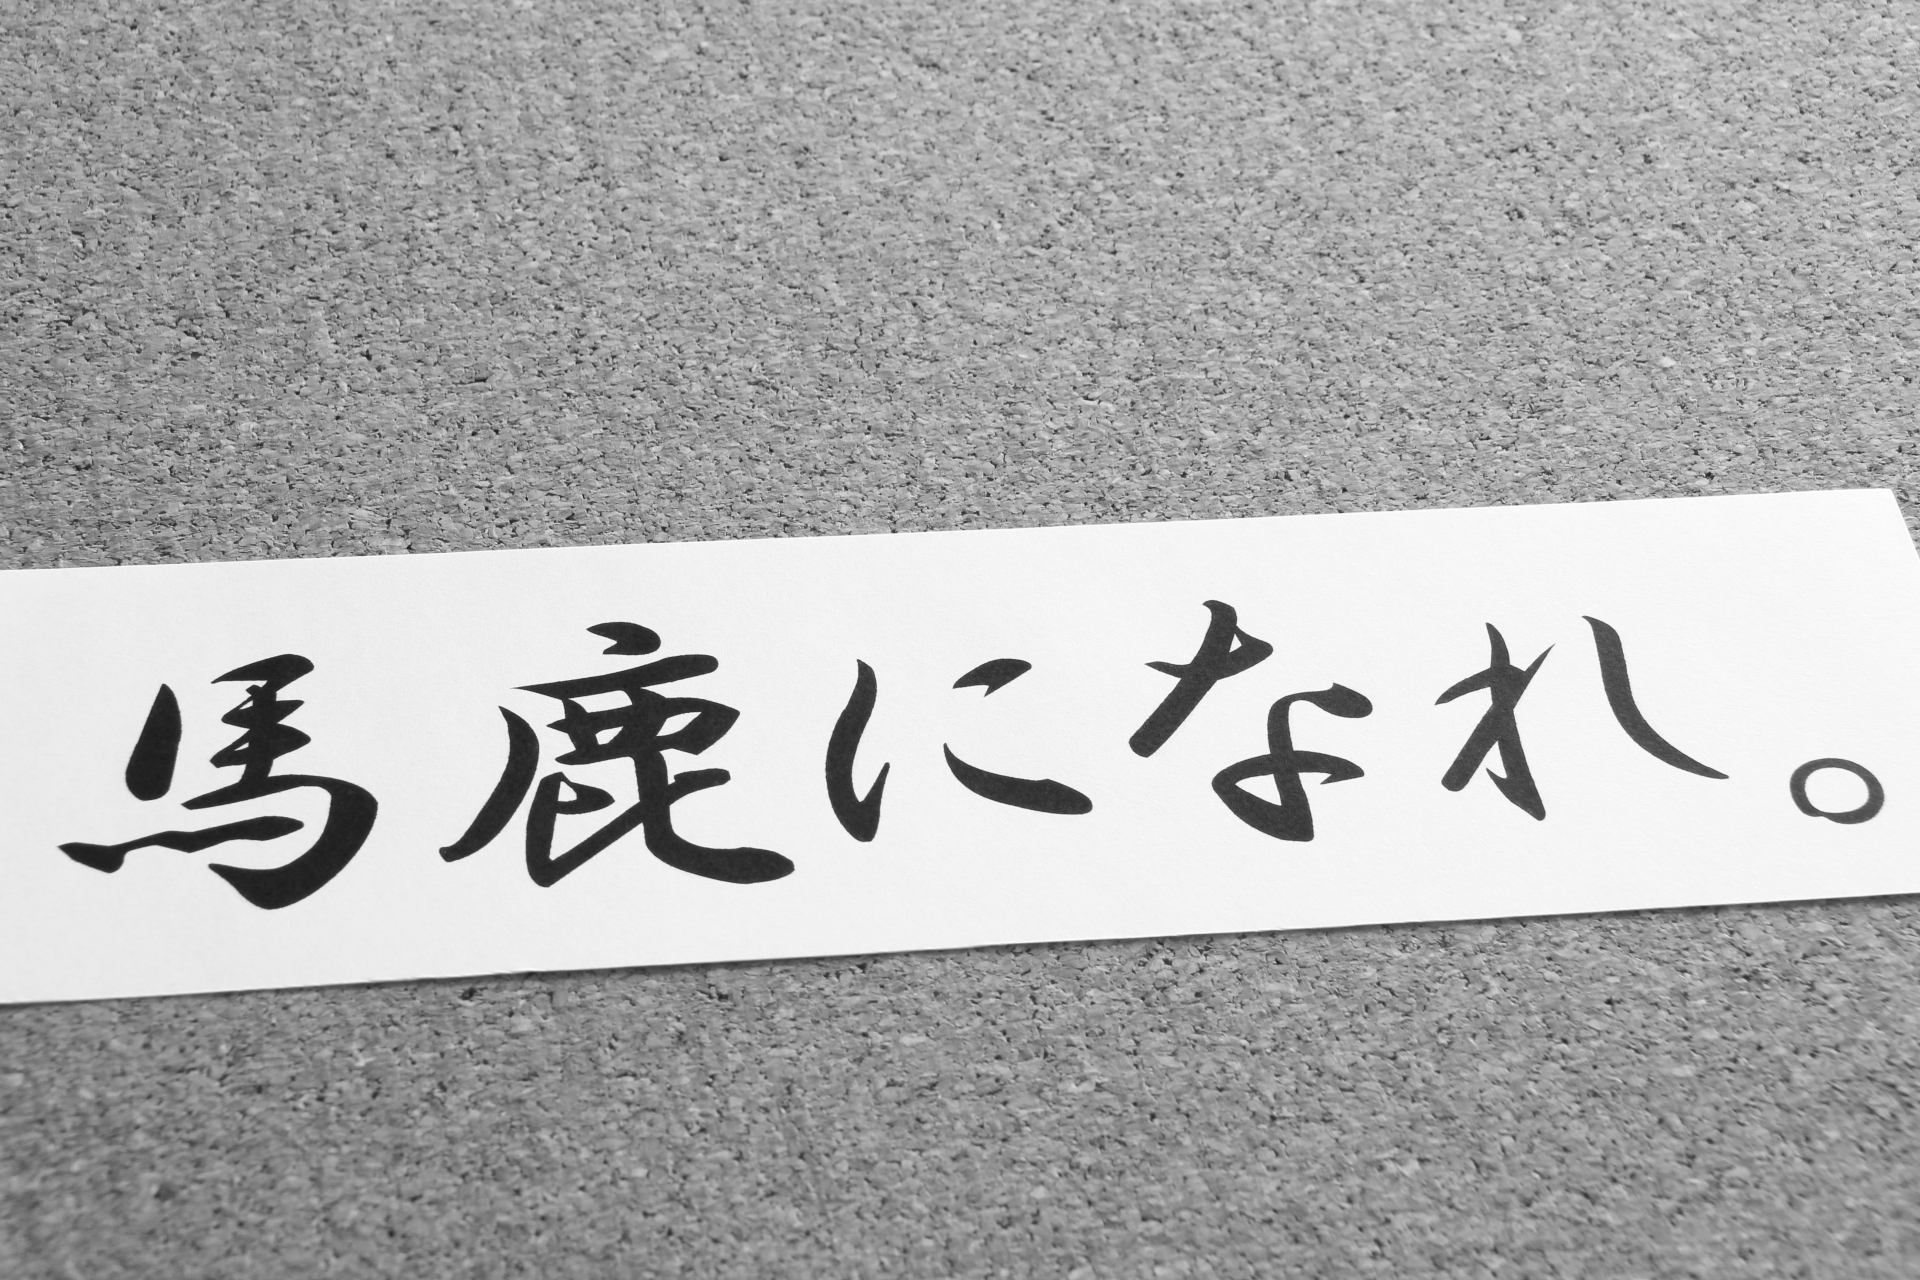 馬鹿になれ。